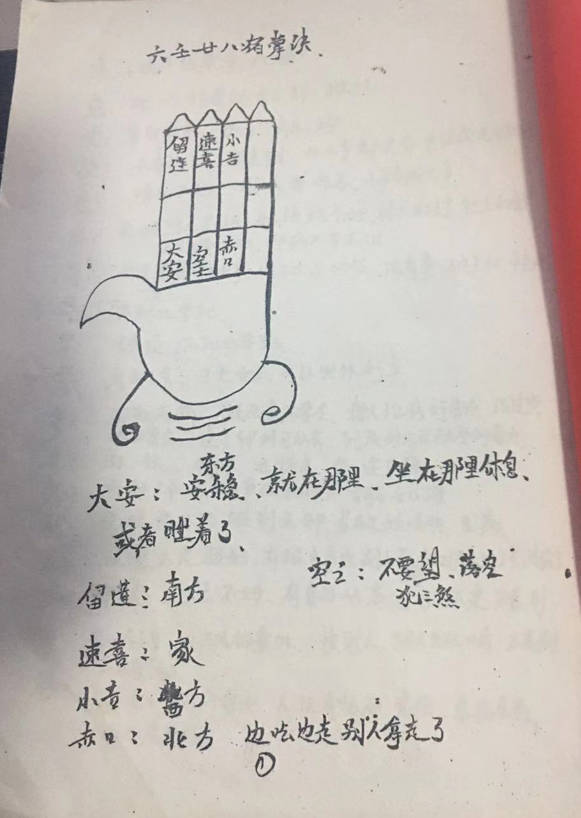 六壬廿八宿掌决
留连 速喜 小吉
大安 空亡 赤口
东方
大安：安稳、就在那里、坐在那里休息、
或者睡着了、
空亡：不要望、落空
犯三煞
留道：南方
速喜：家
小吉：西方
赤口：北方 边吃边走 别人拿走了
①